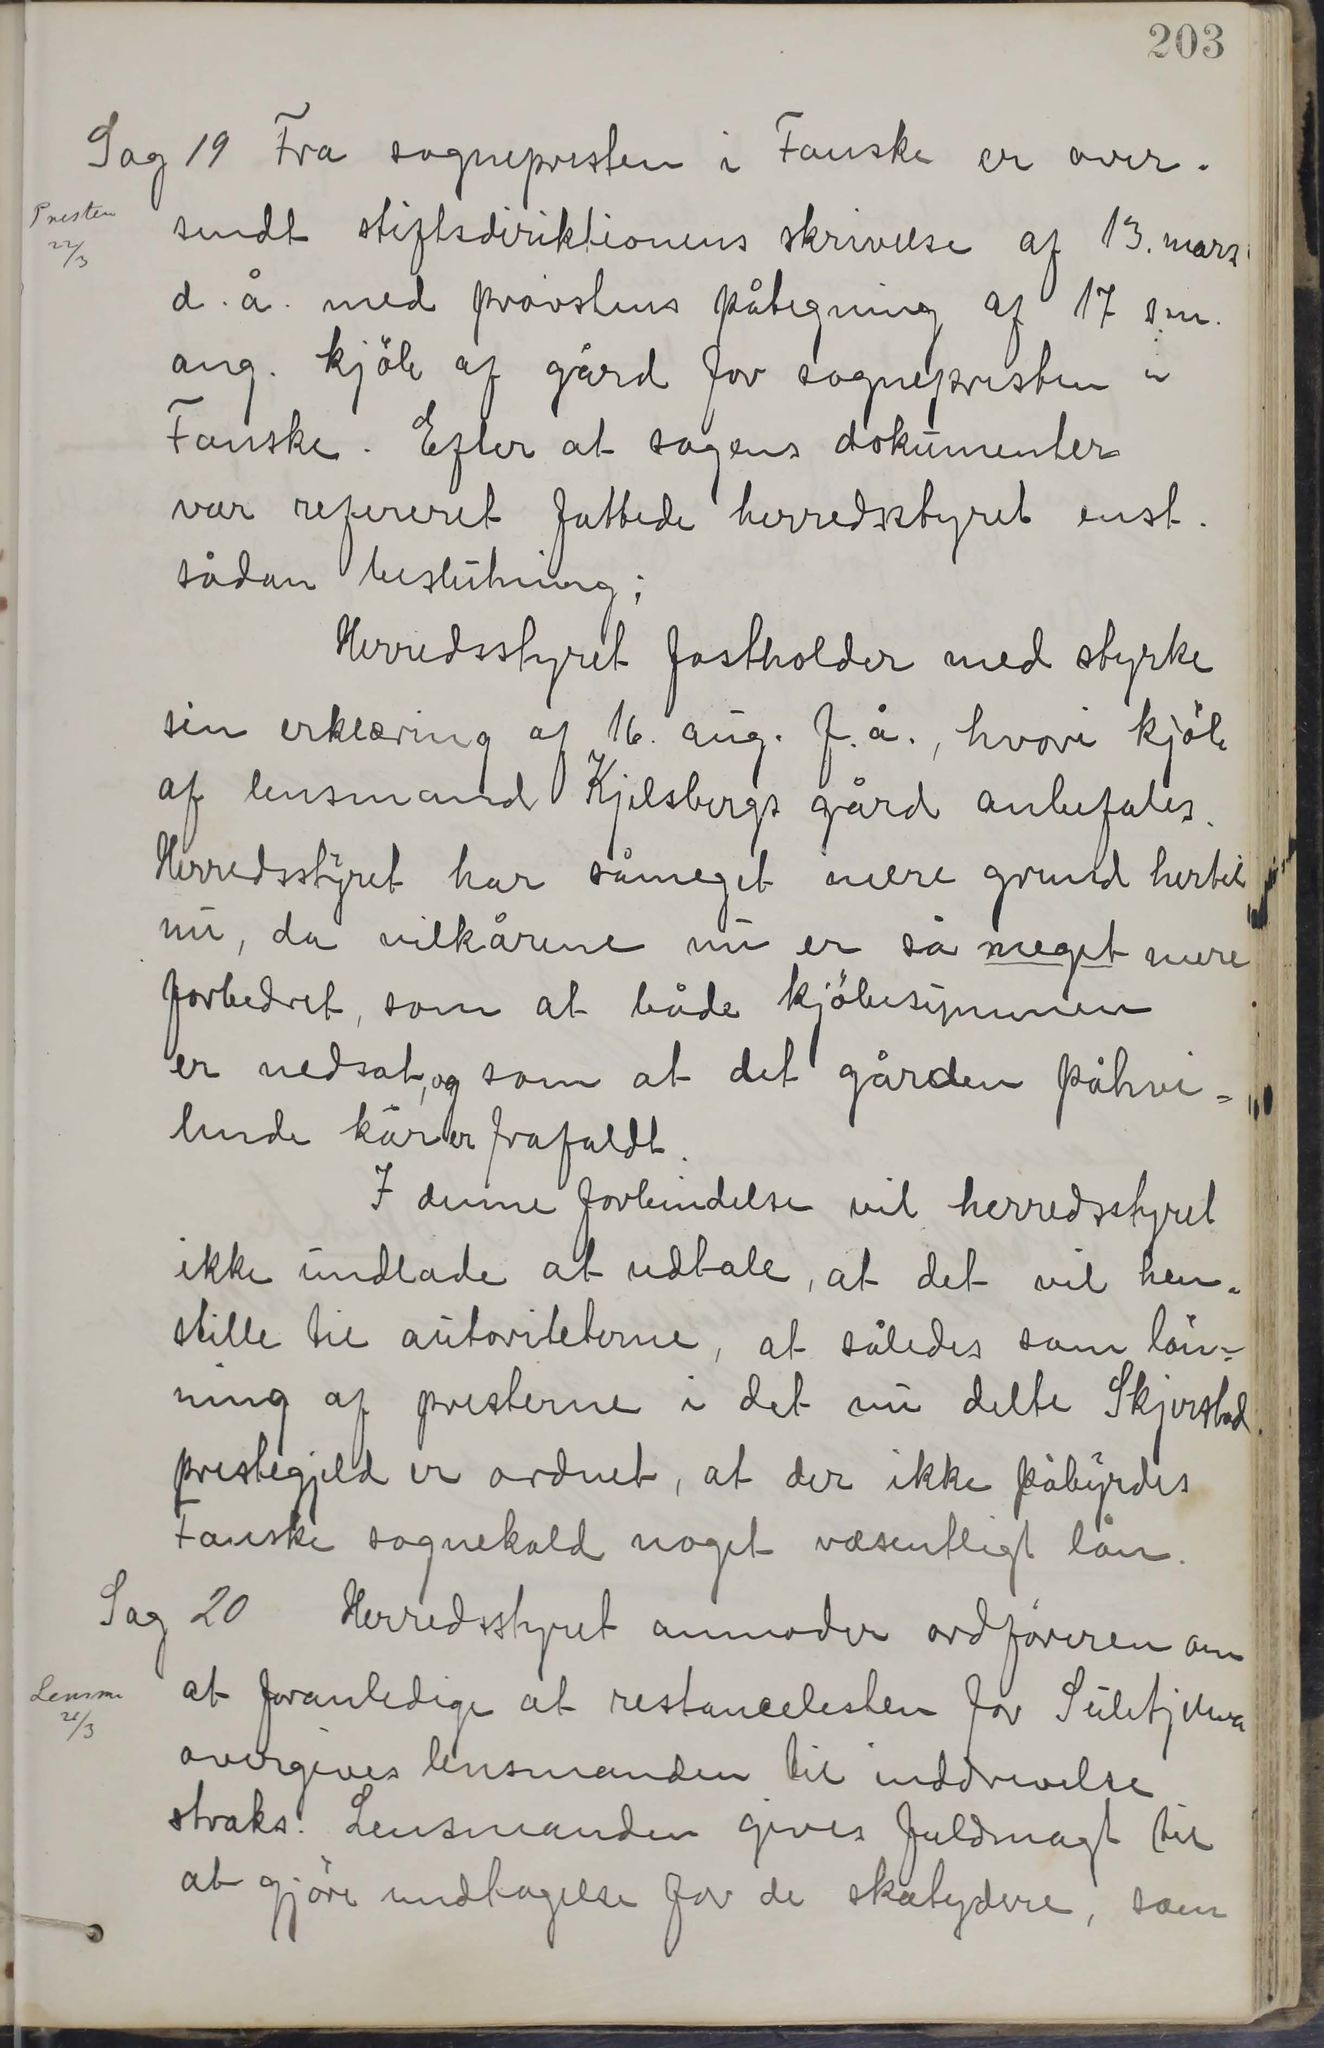 203
Sag 19 Fra sognepresten i Fauske er over-
Presten
22/3
sendt stiftsdirektionens skrivelse af 13. mars
d. å. med provstens påtegning af 17 s.m.
ang. kjöb af gård for sognepresten i
Fauske. Efter at sagens dokumenter
var refereret fattede herredsstyret enst.
sådan beslutning;
Herredsstyret fastholder med styrke
sin erklæring af 16. aug. f.å., hvori kjöb
af lensmand Kjelsbergs gård anbefales.
Herredsstyret har såmeget mere grund hertil
nu, da vilkårene nu er så meget mere
forbedret, som at både kjöbesummen
er nedsat, og som at det gården påhvi-
lende kår er frafaldt.
I denne forbindelse vil herredsstyret
ikke undlade at udtale, at det vil hen-
stille til autoriteterne, at således som lön-
ning af presterne i det nu delte Skjerstad
prestegjeld er ordnet, at der ikke påbyrdes
Fauske sognekald noget væsentligt lån.
Sag 20 Herredsstyret anmoder ordföreren om
Lensm
21/3
at foranledige at restancelisten for Sulitjelma
overgives lensmanden til inddrivelse
straks. Lensmanden gives fuldmagt til
at gjöre undtagelse for de skatydere, som